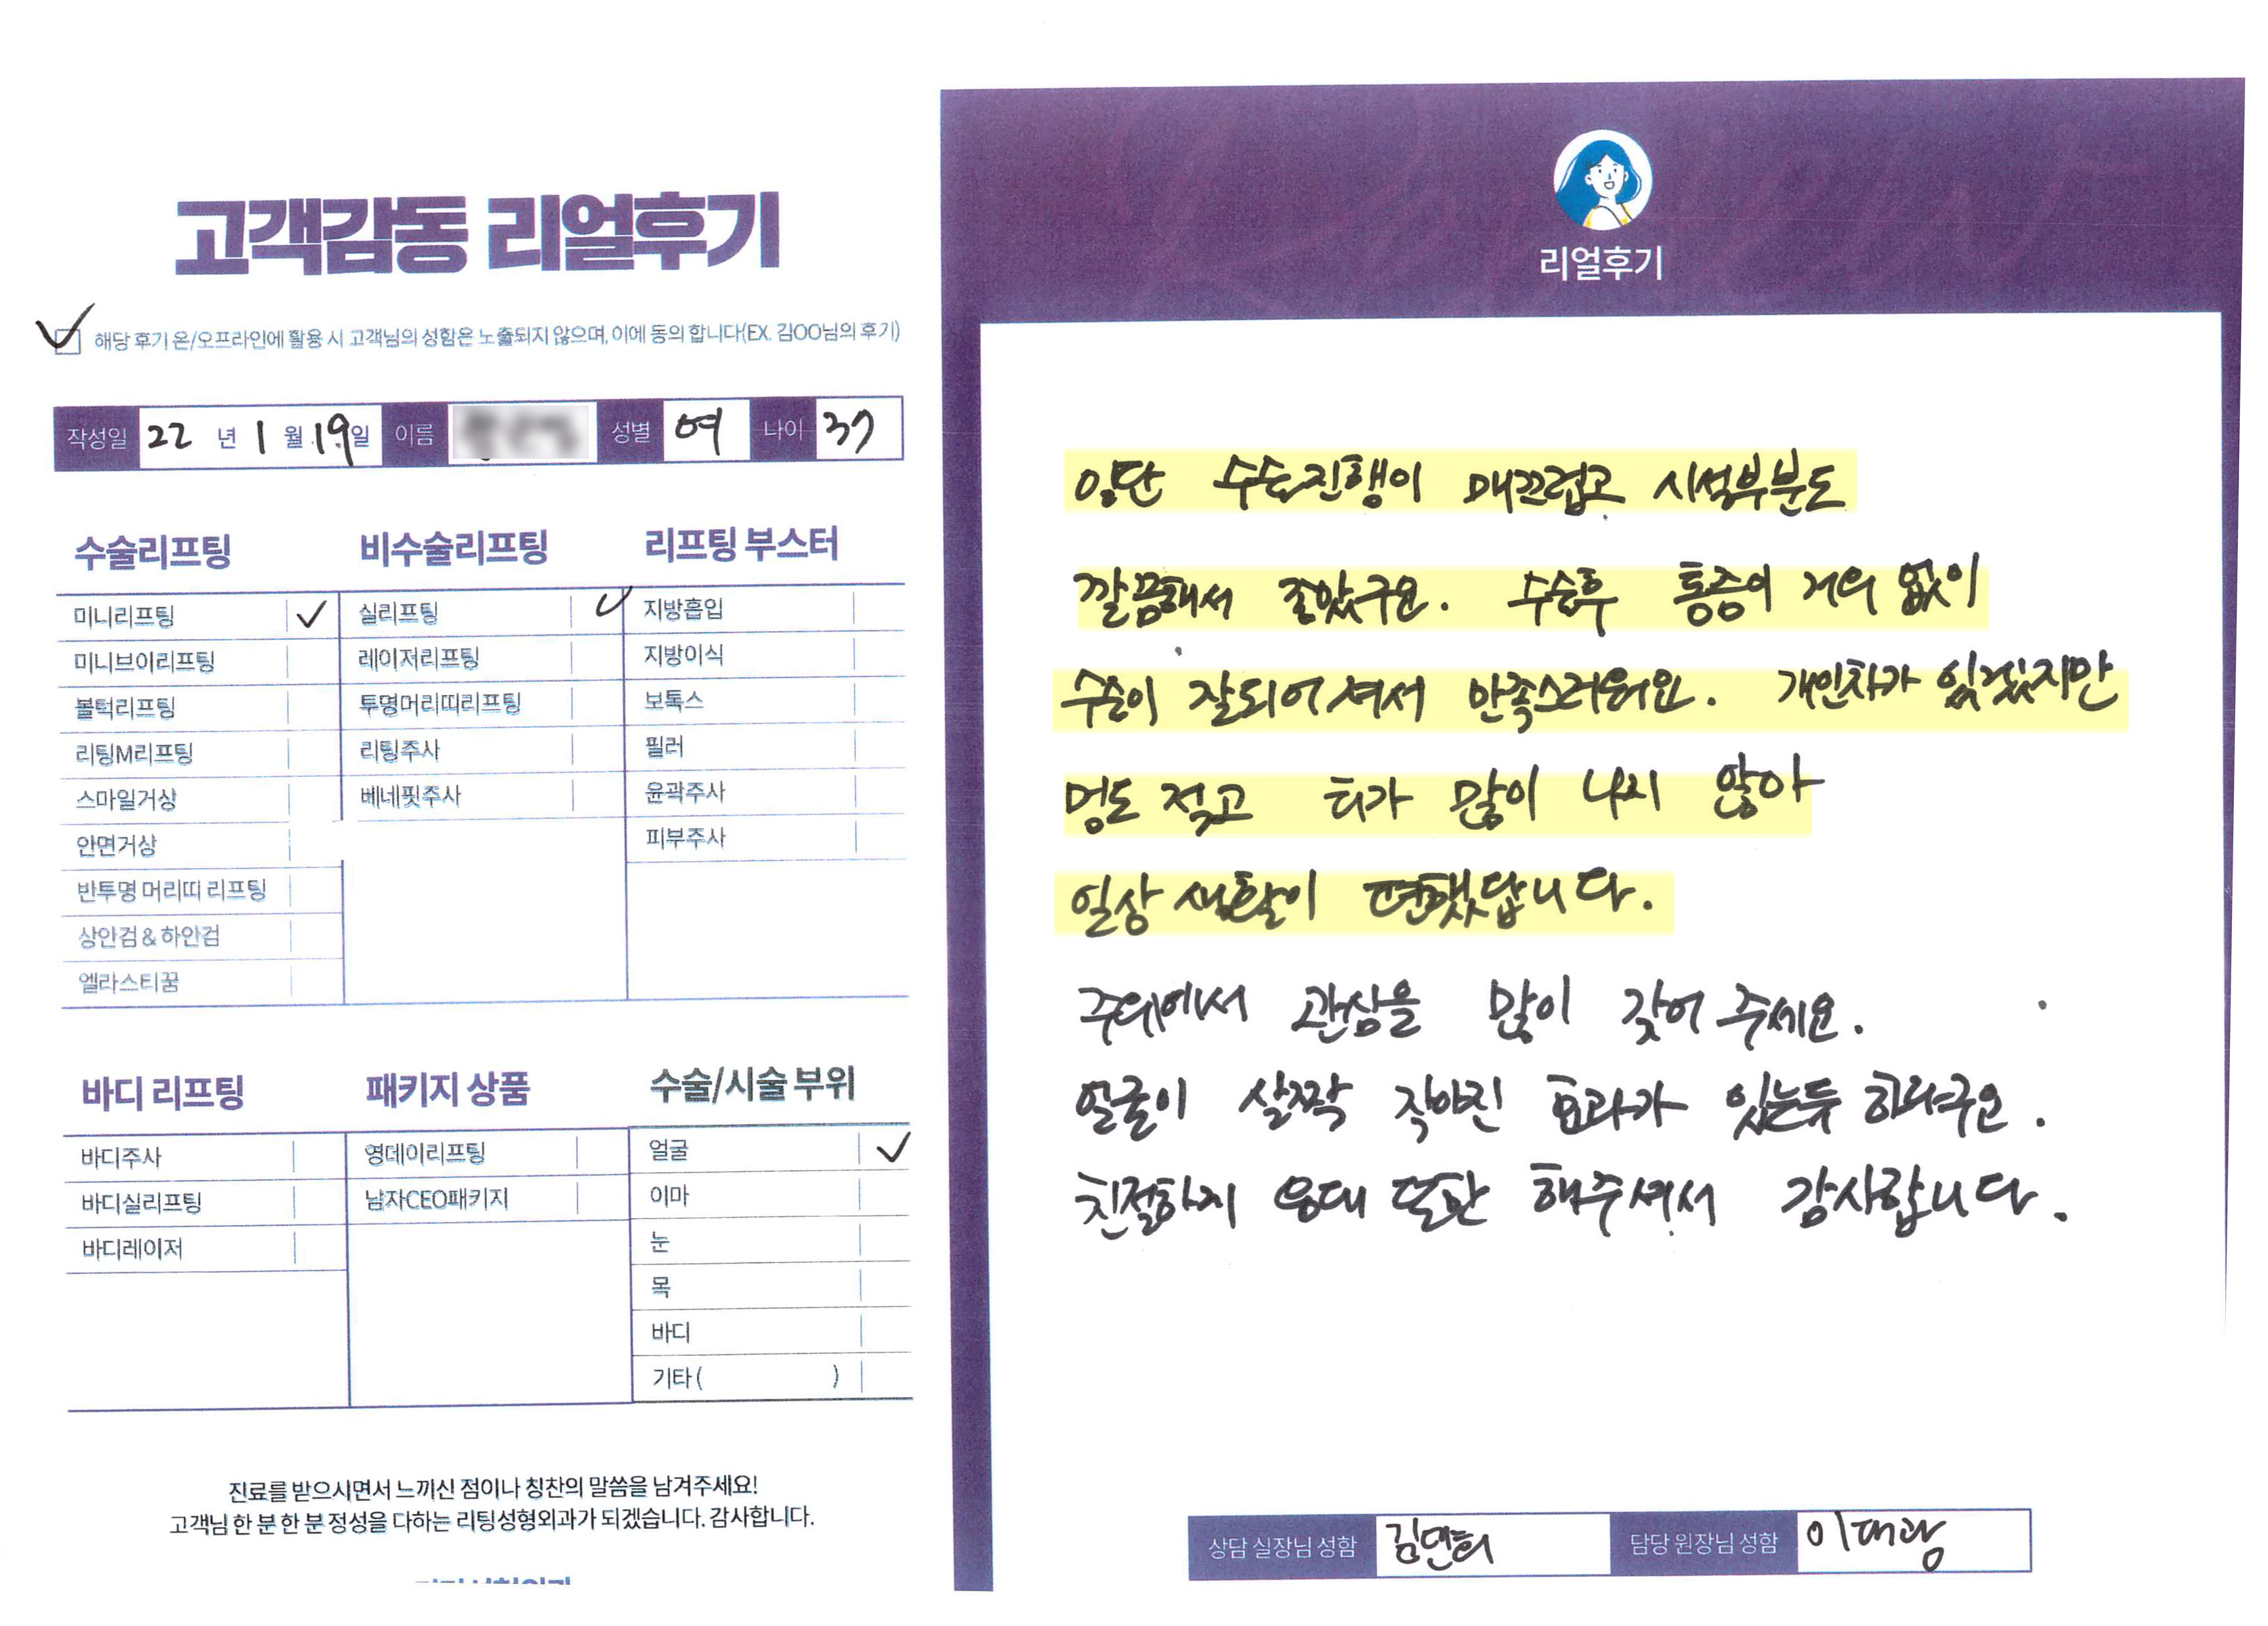 고객감동 리얼후기
해당 후기 온/오프라인에 활용 시 고객님의 성함은 노출되지 않으며, 이에 동의 합니다(EX. 김OO님의 후기)
작성일 22 년 1 월 19일 이름 성별 여 나이 37
수술리프팅
미니리프팅
미니브이리프팅
볼턱리프팅
리팅M리프팅
스마일거상
안면거상
반투명 머리띠 리프팅
상안검 & 하안검
엘라스티꿈
비수술리프팅
실리프팅
레이저리프팅
투명머리띠리프팅
리팅주사
베네핏주사
리프팅 부스터
지방흡입
지방이식
보톡스
필러
윤곽주사
피부주사
바디 리프팅
바디주사
바디실리프팅
바디레이저
패키지 상품
영데이리프팅
남자CEO패키지
수술/시술 부위
얼굴
이마
눈
목
바디
기타 ( )
진료를 받으시면서 느끼신 점이나 칭찬의 말씀을 남겨주세요!
고객님 한 분 한 분 정성을 다하는 리팅성형외과가 되겠습니다. 감사합니다.
리얼후기
일단 수술진행이 매끄럽고 시설부분도
깔끔해서 좋았구요. 수술후 통증이 거의 없이
수술이 잘되어셔서 만족스러워요. 개인차가 있겠지만
멍도 적고 티가 많이 나지 않아
일상 생활이 편했답니다.
주위에서 관심을 많이 갖어 주세요.
얼굴이 살짝 작아진 효과가 있는듯 하더구요.
친절하게 응대 또한 해주셔서 감사합니다.
상담 실장님 성함 김연희 담당 원장님 성함 이대광